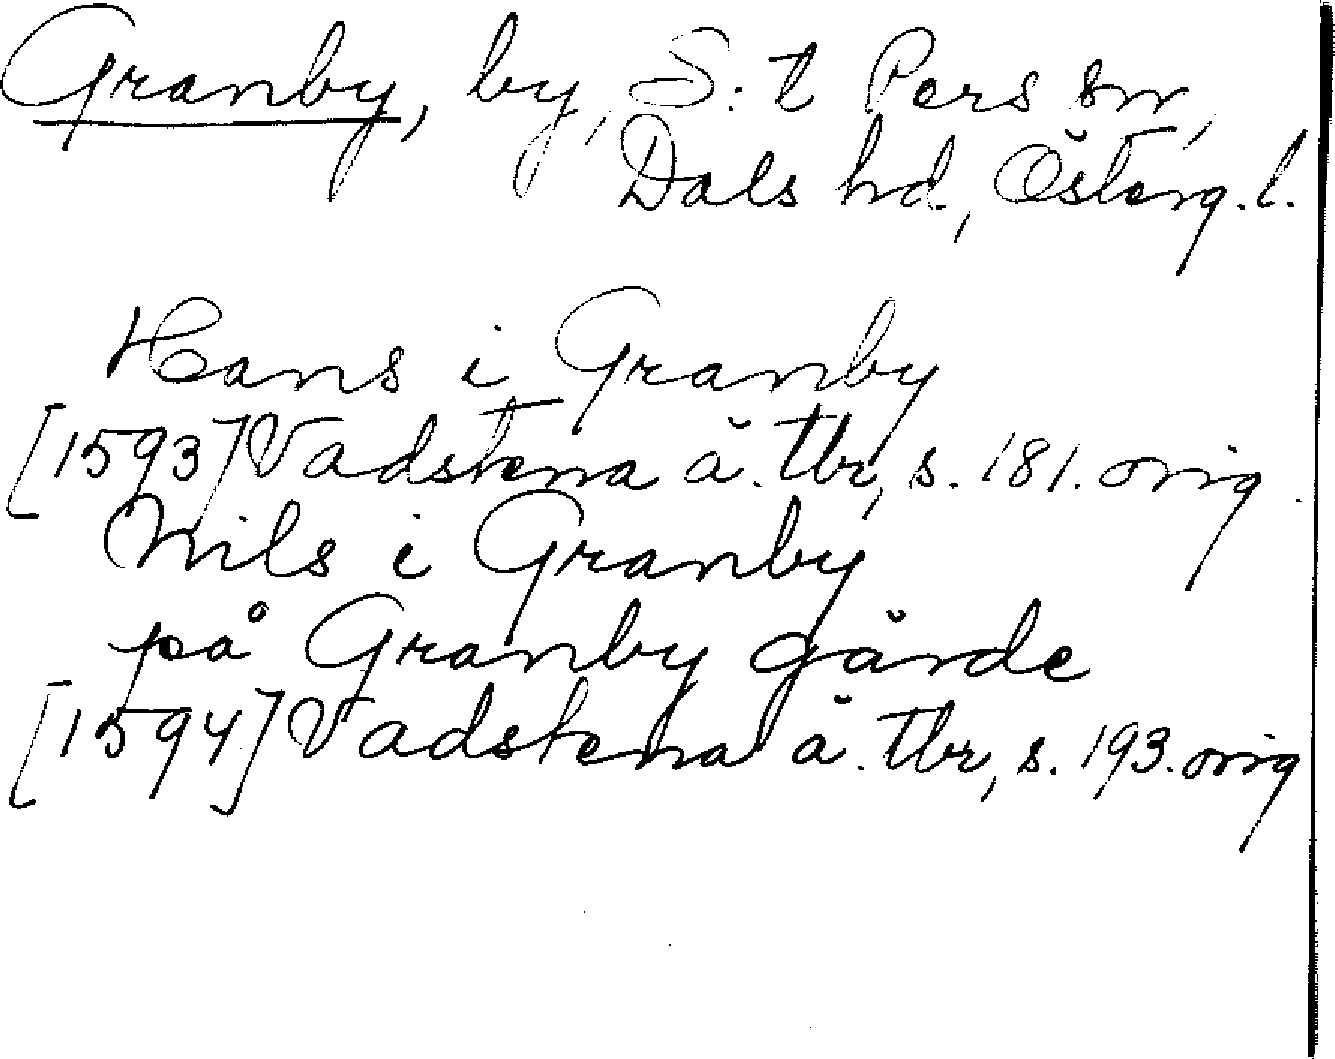 Granby, by, S:t Pers sn,
Dals hd., Österg.l.
Hans i Granby
[1593] Vadstena ä. tbr, s. 181. orig.
Nils i Granby
på Granby gärde
[1594] Vadstena ä. tbr, s. 193. orig